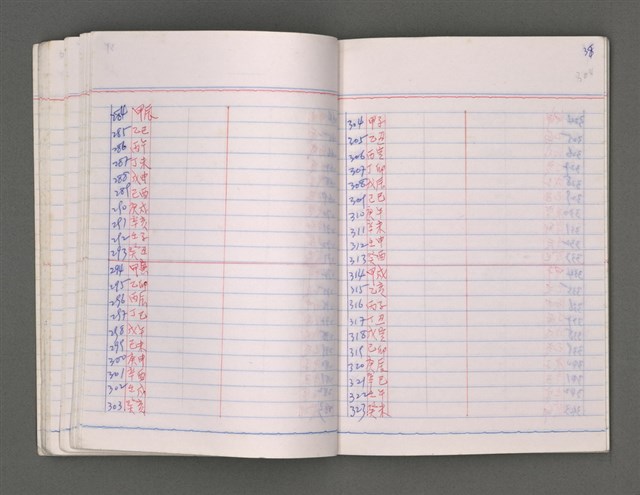 284 甲辰
285 乙巳
286 丙午
287 丁未
288 戊申
289 己酉
290 庚戌
291 辛亥
292 壬子
293 癸丑
294 甲寅
295 乙卯
296 丙辰
297 丁巳
298 戊午
299 己未
300 庚申
301 辛酉
302 壬戌
303 癸亥
38
304
304 甲子
305 乙丑
306 丙寅
307 丁卯
308 戊辰
309 己巳
310 庚午
311 辛未
312 壬申
313 癸酉
314 甲戌
315 乙亥
316 丙子
317 丁丑
318 戊寅
319 己卯
320 庚辰
321 辛巳
322 壬午
323 癸未